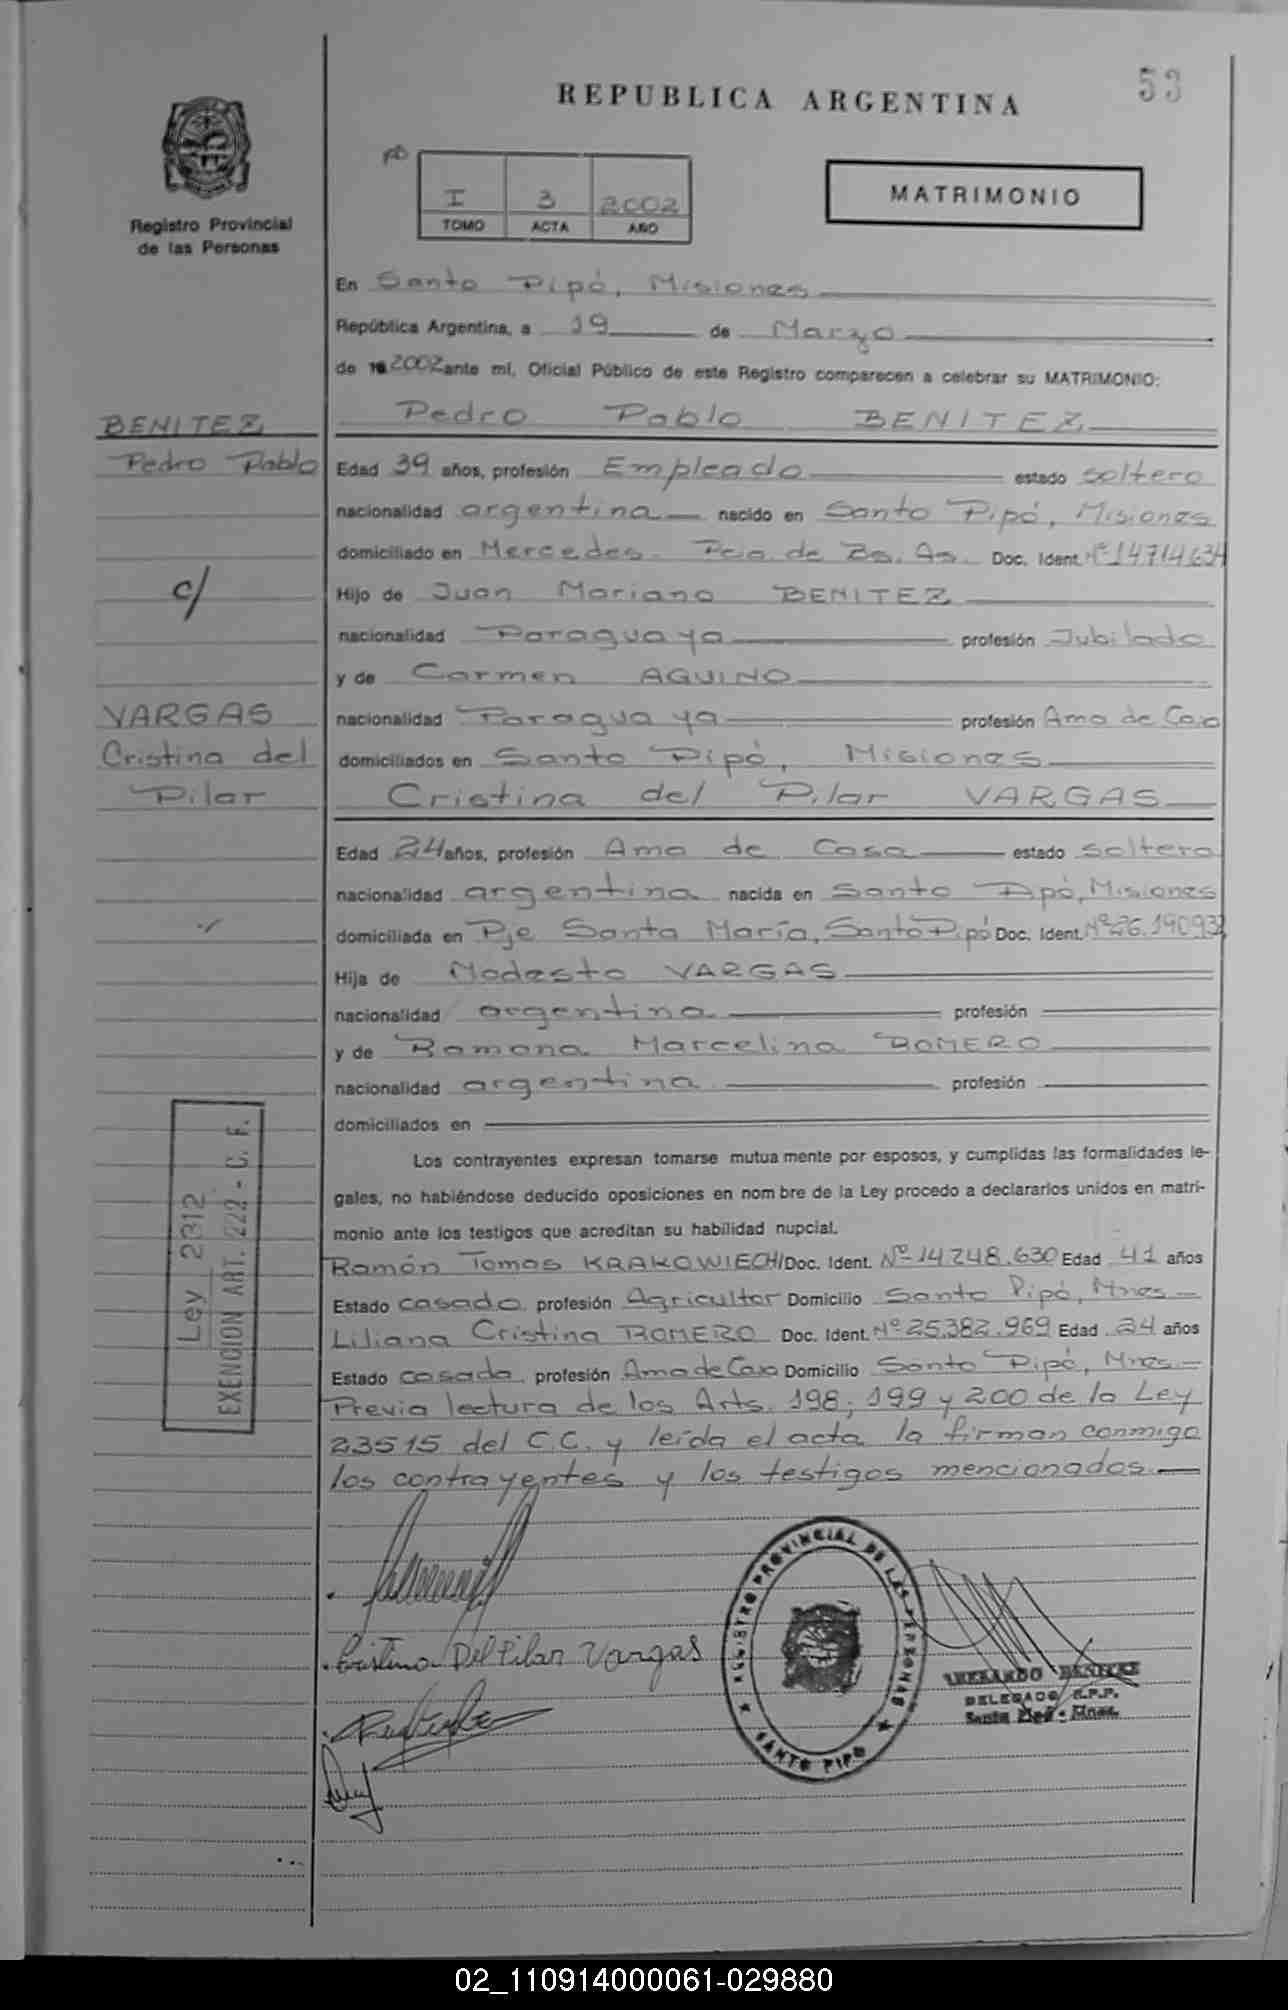 53
REPUBLICA ARGENTINA
I 3 2002
TOMO ACTA AÑO
MATRIMONIO
Registro Provincial
de las Personas
En Santo Pipó, Misiones
República Argentina, a 19 de Marzo
de 19 2002 ante mí, Oficial Público de este Registro comparecen a celebrar su MATRIMONIO:
BENITEZ
Pedro Pablo
c/
VARGAS
Cristina del
Pilar
Pedro Pablo BENITEZ
Edad 39 años, profesión Empleado estado soltero
nacionalidad argentina nacido en Santo Pipó, Misiones
domiciliado en Mercedes Pcia de Bs. As. Doc. Ident. Nº 14714634
Hijo de Juan Mariano BENITEZ
nacionalidad Paraguaya profesión Jubilado
y de Carmen AQUINO
nacionalidad Paraguaya profesión Ama de Casa
domiciliados en Santo Pipó, Misiones
Cristina del Pilar VARGAS
Edad 24 años, profesión Ama de Casa estado soltera
nacionalidad argentina nacida en Santo Pipó, Misiones
domiciliada en Pje Santa María, Santo Pipó Doc. Ident. Nº 26.190932
Hija de Modesto VARGAS
nacionalidad argentina profesión
y de Ramona Marcelina ROMERO
nacionalidad argentina profesión
domiciliados en
Los contrayentes expresan tomarse mutuamente por esposos, y cumplidas las formalidades le-
gales, no habiéndose deducido oposiciones en nombre de la Ley procedo a declararlos unidos en matri-
monio ante los testigos que acreditan su habilidad nupcial.
Ramón Tomas KRAKOWIECKI Doc. Ident. Nº 14.248.630 Edad 41 años
Estado casado profesión Agricultor Domicilio Santo Pipó, Mnes
Liliana Cristina ROMERO Doc. Ident. Nº 25.382.969 Edad 24 años
Estado casada profesión Ama de Casa Domicilio Santo Pipó, Mnes.
Previa lectura de los Arts. 198; 199 y 200 de la Ley
23515 del C.C. y leída el acta la firman conmigo
los contrayentes y los testigos mencionados
Ley 2312
EXENCION ART. 222 - C. F.
Cristina Del Pilar Vargas
REGISTRO PROVINCIAL DE LAS PERSONAS
SANTO PIPO
BENITEZ
DELEGADO R.P.P.
Santo Pipó - Mnes.
02_110914000061-029880